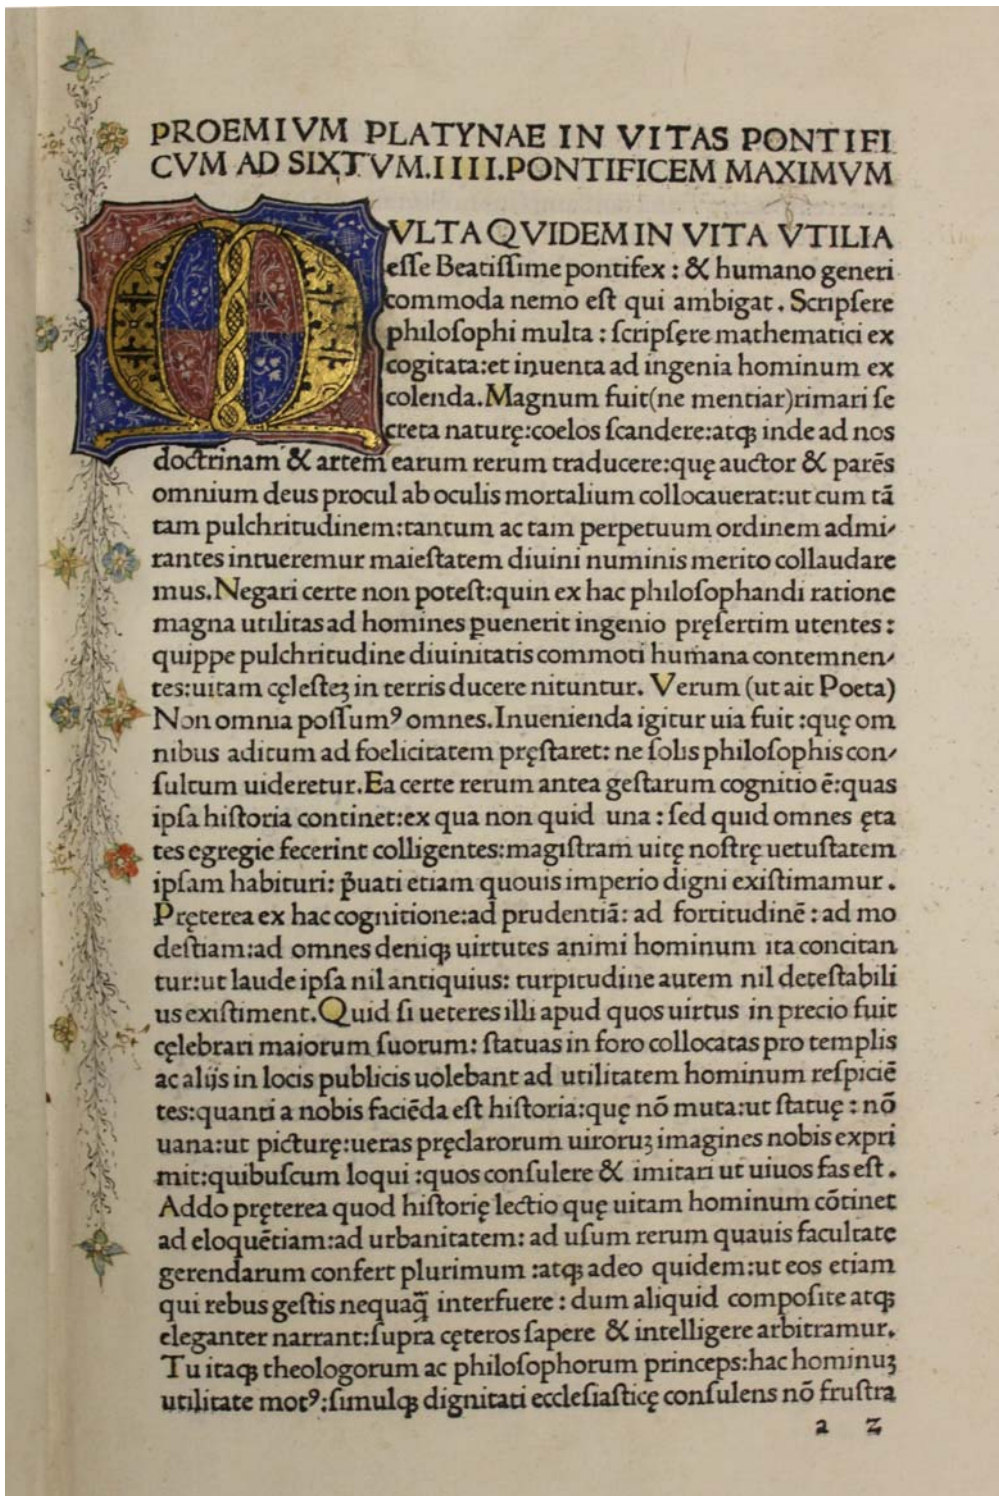 PROEMIVM PLATYNAE IN VITAS PONTIFI
CVM AD SIXTVM.IIII.PONTIFICEM MAXIMVM
MVLTA QVIDEM IN VITA VTILIA
eſſe Beatiſſime pontifex : & humano generi
commoda nemo eſt qui ambigat . Scripſere
philoſophi multa : ſcripſere mathematici ex
cogitata:et inuenta ad ingenia hominum ex
colenda.Magnum fuit(ne mentiar)rimari ſe
creta naturę:coelos ſcandere:atqꝫ inde ad nos
doctrinam & artem earum rerum traducere:quę auctor & parēs
omnium deus procul ab oculis mortalium collocauerat:ut cum tā
tam pulchritudinem:tantum ac tam perpetuum ordinem admi⸗
rantes intueremur maieſtatem diuini numinis merito collaudare
mus.Negari certe non poteſt:quin ex hac philoſophandi ratione
magna utilitas ad homines ꝑuenerit ingenio pręſertim utentes :
quippe pulchritudine diuinitatis commoti humana contemnen⸗
tes:uitam cęleſteꝫ in terris ducere nituntur. Verum (ut ait Poeta)
Non omnia poſſumꝰ omnes.Inuenienda igitur uia fuit :quę om
nibus aditum ad foelicitatem pręſtaret: ne ſolis philoſophis con⸗
ſultum uideretur.Ea certe rerum antea geſtarum cognitio ē:quas
ipſa hiſtoria continet:ex qua non quid una : ſed quid omnes ęta
tes egregie fecerint colligentes:magiſtram uitę noſtrę uetuſtatem
ipſam habituri: p̄uati etiam quouis imperio digni exiſtimamur .
Pręterea ex hac cognitione:ad prudentiā: ad fortitudinē : ad mo
deſtiam:ad omnes deniqꝫ uirtutes animi hominum ita concitan
tur:ut laude ipſa nil antiquius: turpitudine autem nil deteſtabili
us exiſtiment.Quid ſi ueteres illi apud quos uirtus in precio fuit
cęlebrari maiorum ſuorum: ſtatuas in foro collocatas pro templis
ac alijs in locis publicis uolebant ad utilitatem hominum reſpiciē
tes:quanti a nobis faciēda eſt hiſtoria:quę nō muta:ut ſtatuę : nō
uana:ut picturę:ueras pręclarorum uiroruꝫ imagines nobis expri
mit:quibuſcum loqui :quos conſulere & imitari ut uiuos fas eſt .
Addo pręterea quod hiſtorię lectio quę uitam hominum cōtinet
ad eloquētiam:ad urbanitatem: ad uſum rerum quauis facultate
gerendarum confert plurimum :atqꝫ adeo quidem:ut eos etiam
qui rebus geſtis nequaq̄ interfuere : dum aliquid compoſite atqꝫ
eleganter narrant:ſupra cęteros ſapere & intelligere arbitramur.
Tu itaqꝫ theologorum ac philoſophorum princeps:hac hominuꝫ
utilitate motꝰ:ſimulqꝫ dignitati eccleſiaſticę conſulens nō fruſtra
a 2